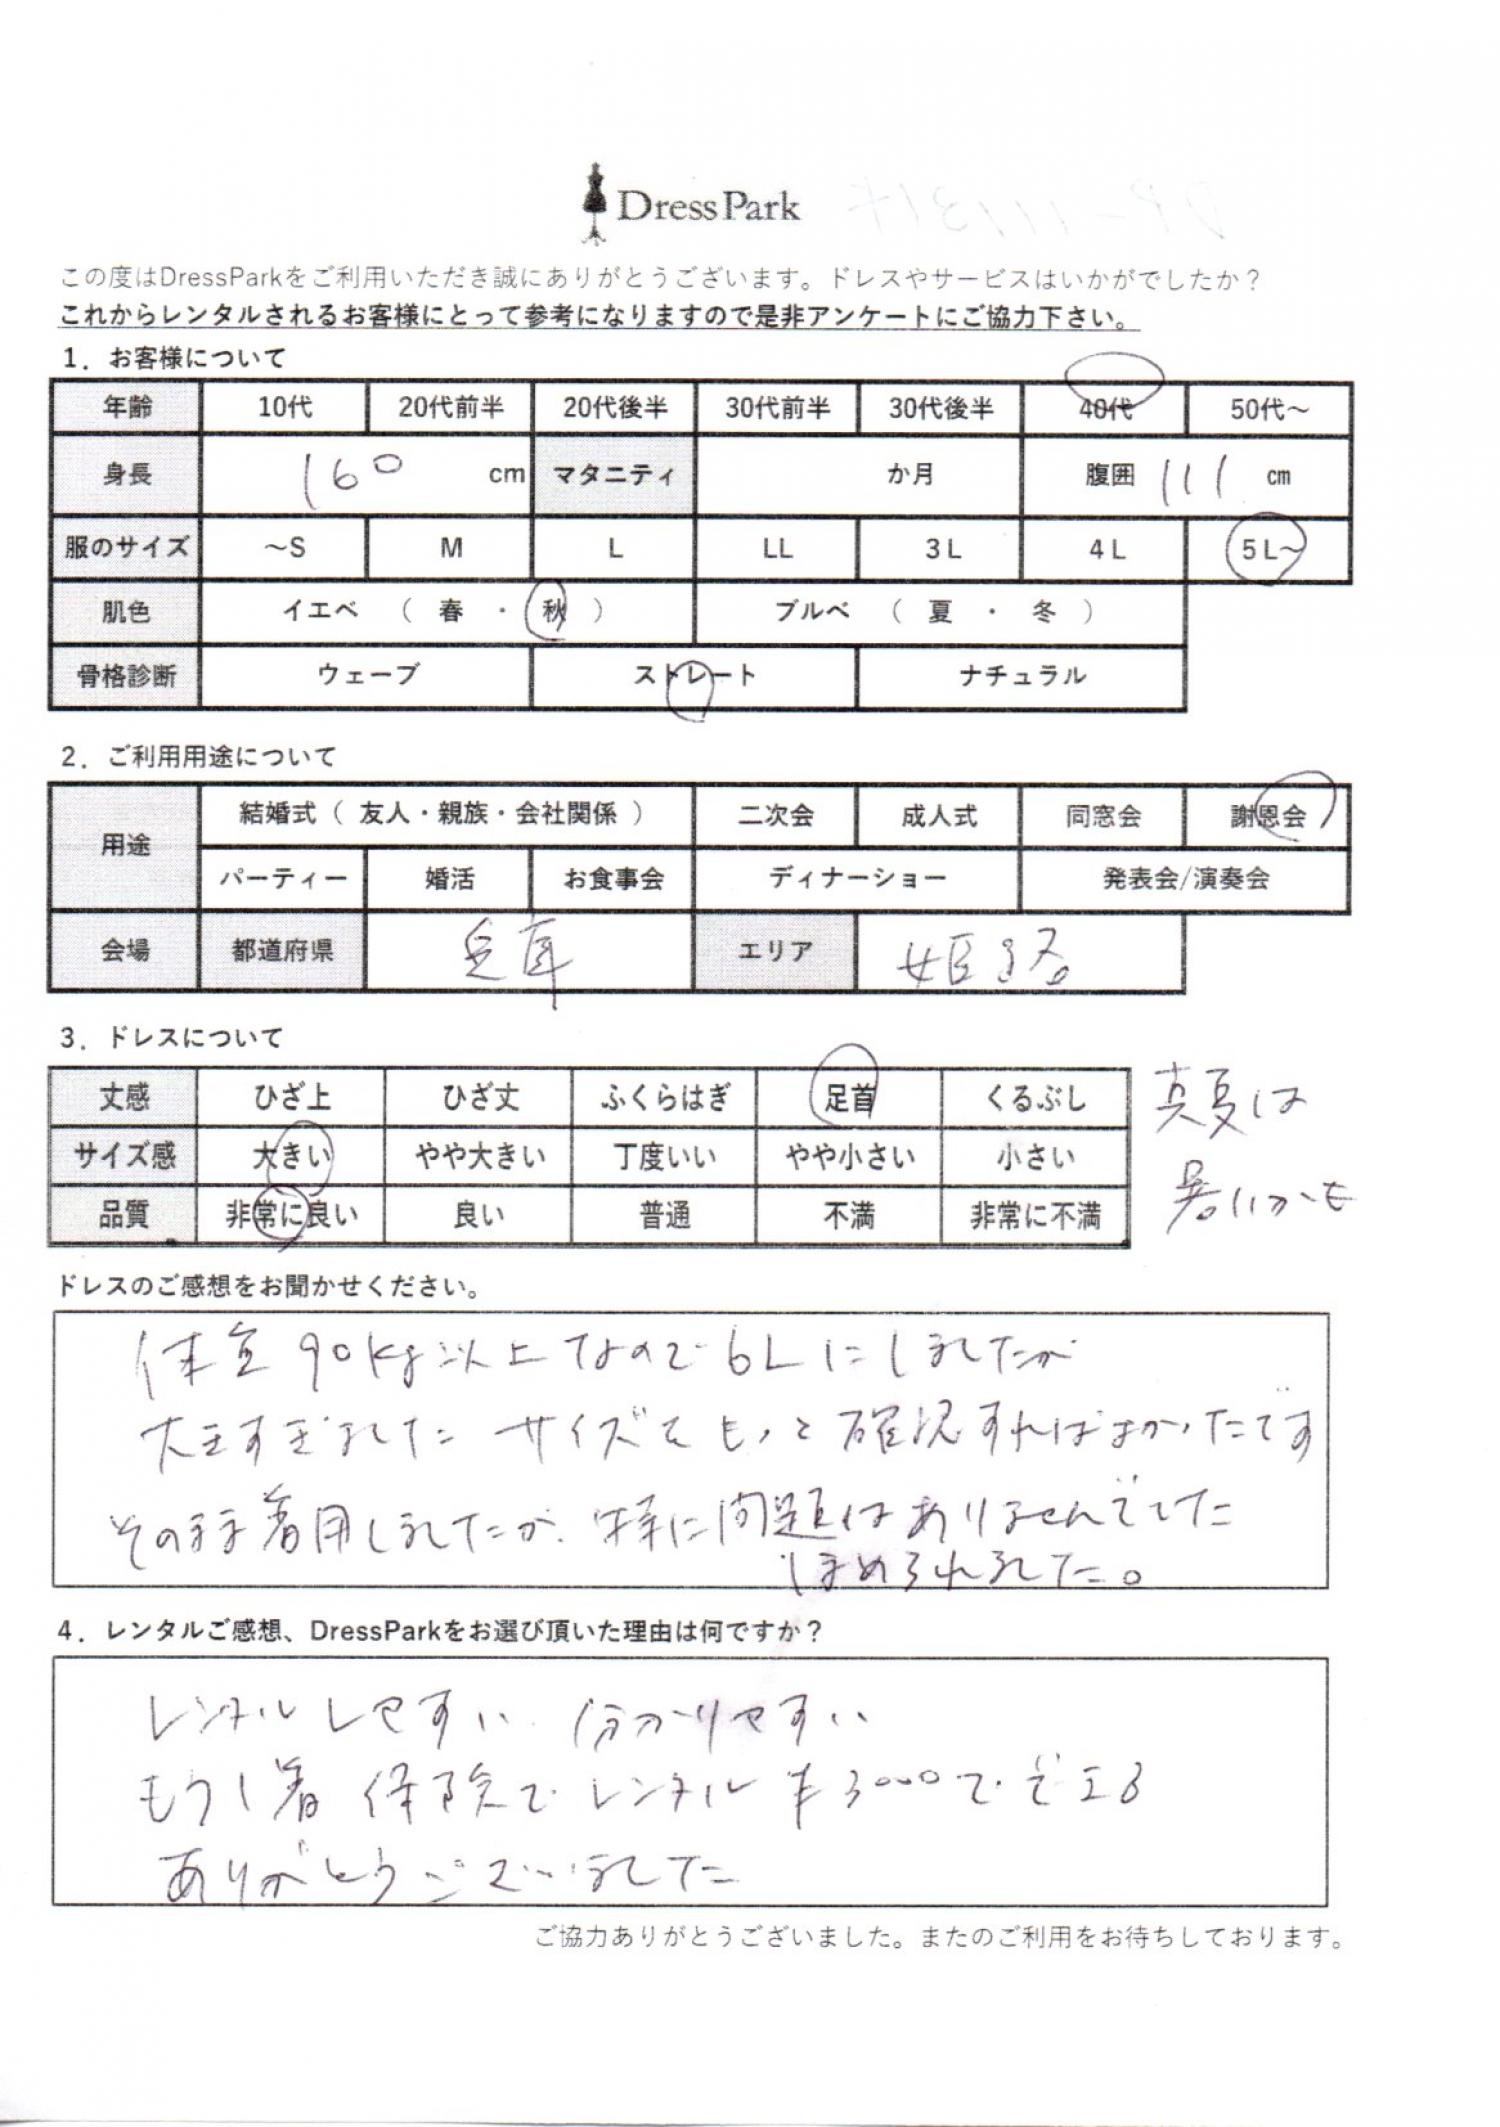 DressPark
この度はDressParkをご利用いただき誠にありがとうございます。ドレスやサービスはいかがでしたか？
これからレンタルされるお客様にとって参考になりますので是非アンケートにご協力下さい。
1．お客様について
年齢 10代 20代前半 20代後半 30代前半 30代後半 40代 50代～
身長 160 cm マタニティ か月 腹囲 111 cm
服のサイズ ～S M L LL 3L 4L 5L～
肌色 イエベ （ 春 ・ 秋 ） ブルベ （ 夏 ・ 冬 ）
骨格診断 ウェーブ ストレート ナチュラル
2．ご利用用途について
用途 結婚式（ 友人・親族・会社関係 ） 二次会 成人式 同窓会 謝恩会
パーティー 婚活 お食事会 ディナーショー 発表会/演奏会
会場 都道府県 兵庫 エリア 姫路
3．ドレスについて
丈感 ひざ上 ひざ丈 ふくらはぎ 足首 くるぶし
サイズ感 大きい やや大きい 丁度いい やや小さい 小さい
品質 非常に良い 良い 普通 不満 非常に不満
真夏は
暑いかも
ドレスのご感想をお聞かせください。
体重90kg以上なので6Lにしましたが
大きすぎました サイズをもっと確認すればよかったです
そのまま着用しましたが、特に問題はありませんでした
ほめられました。
4．レンタルご感想、DressParkをお選び頂いた理由は何ですか？
レンタルしやすい 分かりやすい
もう1着 保険でレンタル ¥3000で
ありがとうございました
ご協力ありがとうございました。またのご利用をお待ちしております。